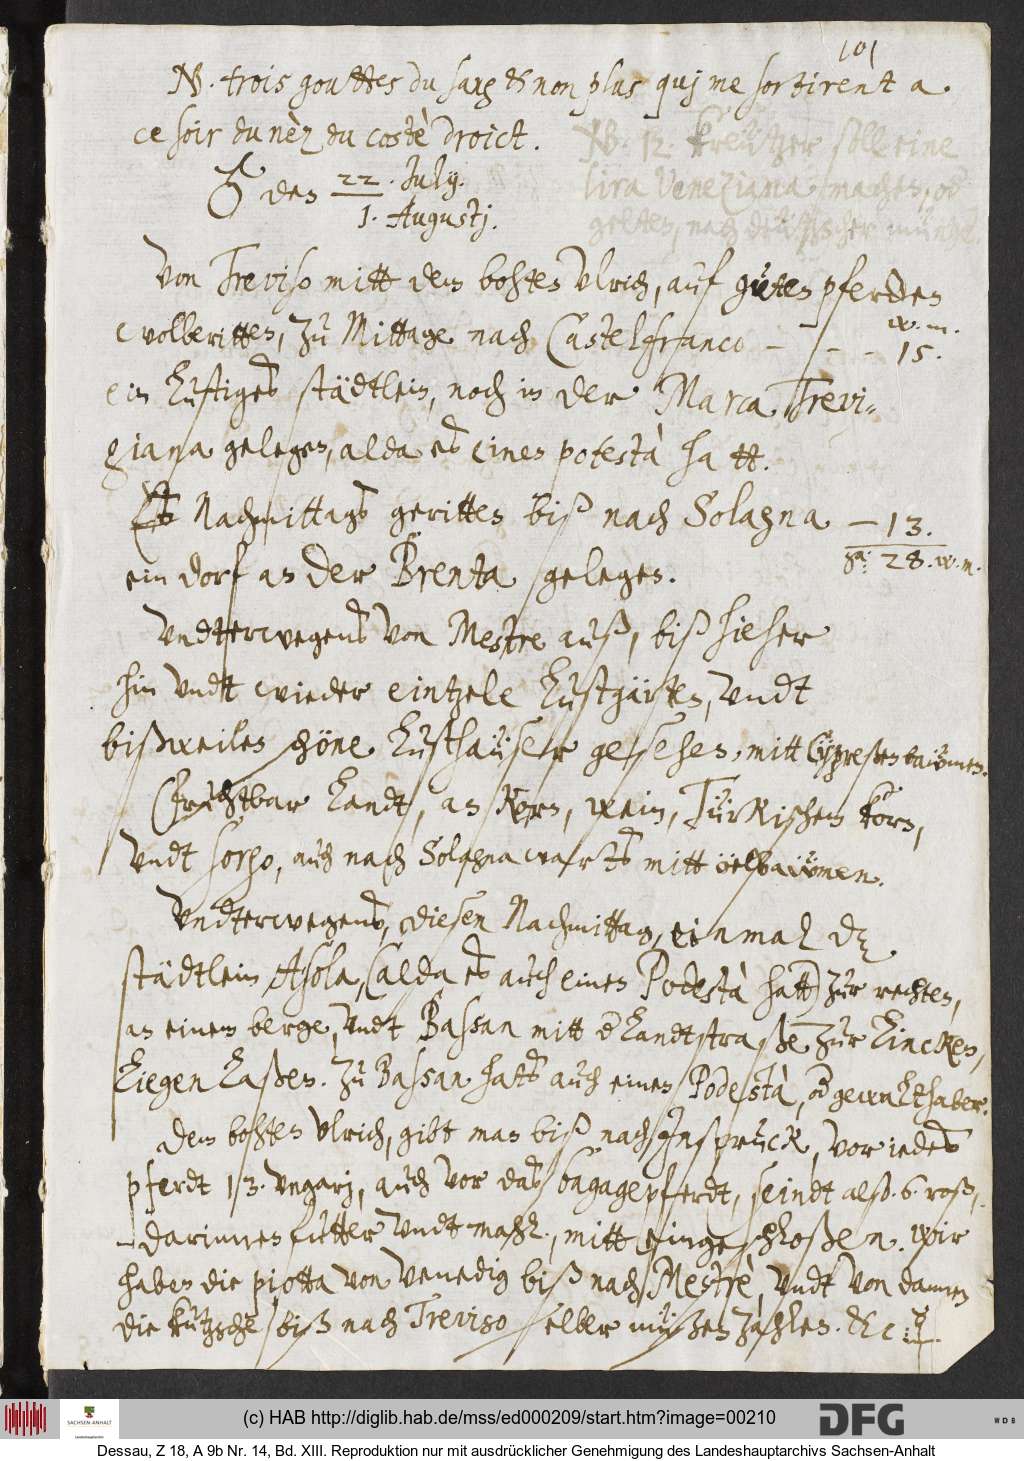 101
NB. trois gouttes du sang et non plus quj me sortirent a
ce soir du nèz du costè droict.
NB. 12. Kreützer soll eine
lira Veneziana machen, od
gelten, nach deützscher müntze.
♂ den 22. July.
1. Augustj.
Von Treviso mitt dem bohten Ulrich, auf guten pferden
w. m.
wolberitten, zu Mittage nach Castelfranco - - - 15.
ein lustiges städtlein, noch in der Marca Trevi=
giana gelegen, alda es einen potestà hatt.
Nachmittags geritten biß nach Solagna - 13.
Sa: 28. w. m.
ein dorf an der Brenta gelegen.
Undterwegens von Mestre auß, biß hieher
hin undt wieder eintzele lustgärten, undt
bißweilen schöne lusthaüser gesehen, mitt Cypreßenbaümen.
Fruchtbar landt, an Korn, wein, Türkischem korn,
undt sorgo, auch nach Solagna warts mitt öelbaümen.
Undterwegens, diesen Nachmittag, einmal dz
städtlein Asola, (alda es auch einen Podestà hatt) zur rechten,
an einem berge, undt Bassan mitt der landtstraße zur lincken,
liegen laßen. Zu Bassan hatts auch einen Podestà, od gewalthaber.
Dem bohten Ulrich, gibt man biß nach Insprugk, vor iedes
pferdt 13. ungarj, auch vor das bagagepferdt, seindt also 6. roß,
darinnen futter undt mahl., mitt eingeschloßen. Wir
haben die piotta von Venedig biß nach Mestrè, undt von dannen
die kutzsche biß nach Treviso selber müßen zahlen. etc:
(c) HAB http://diglib.hab.de/mss/ed000209/start.htm?image=00210
SACHSEN-ANHALT
DFG
WDB
Dessau, Z 18, A 9b Nr. 14, Bd. XIII. Reproduktion nur mit ausdrücklicher Genehmigung des Landeshauptarchivs Sachsen-Anhalt